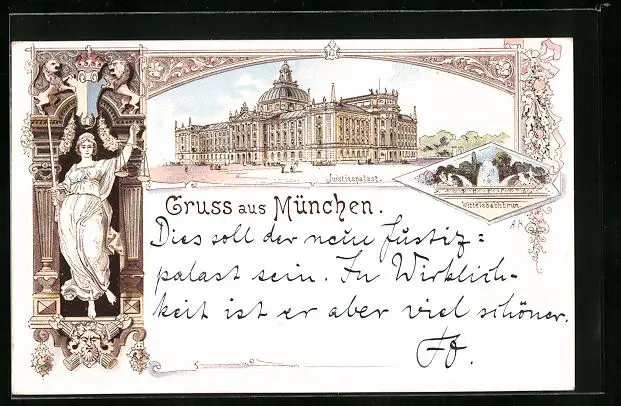 Justizpalast.
Wittelsbachbrun.
Gruss aus München.
Dies soll der neue Justiz=
palast sein. In Wirklich-
keit ist er aber viel schöner.